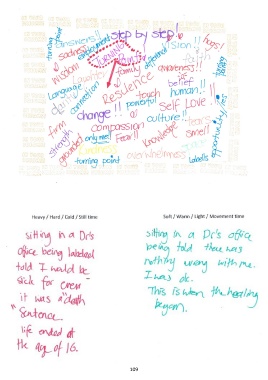 step by step!
answers!!
turning point
sadness
employment
vision!!
hugs!
TURNING
Point
different
faith
family
awareness!!
laughter
Language
Resilience
touch
of
belief
human!!
connection
change!!
powerful
Self Love!!
opportunity/ies
firm
compassion
tears
strength
only me!
Fear!!
knowledge
smell
grounded
overwhelmness
Labels
turning point
Heavy / Hard / Cold / Still time
Soft / Warm / Light / Movement time
sitting in a Dr's
office being labeled
told I would be
sick for ever
it was a "death
Sentence.
life ended at
the age of 16.
sitting in a Dr's office
being told there was
nothing wrong with me.
I was ok.
This is when the healing
began.
109